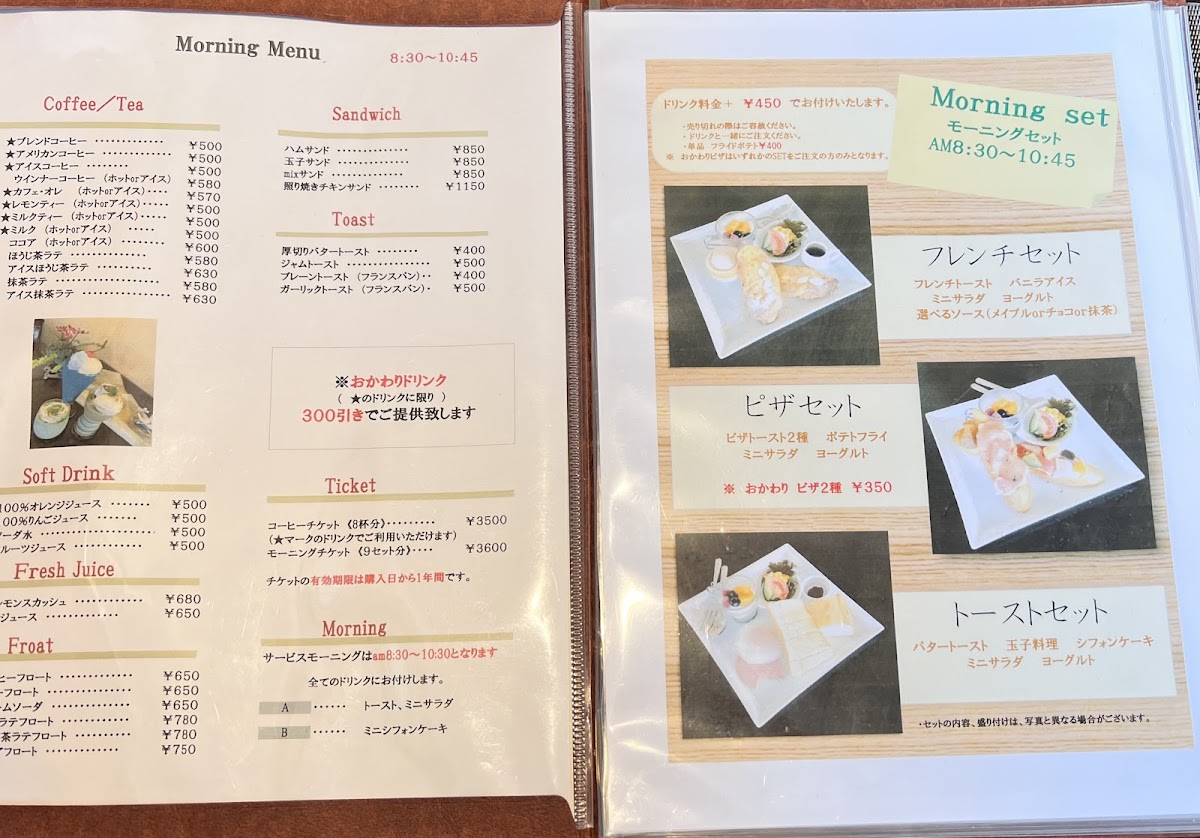 Morning Menu
8:30～10:45
Coffee／Tea
★ブレンドコーヒー ･････････････ ￥500
★アメリカンコーヒー ･････････････ ￥500
★アイスコーヒー ････････ ￥500
ウインナーコーヒー （ホットorアイス） ￥580
★カフェ・オレ （ホットorアイス）････ ￥570
★レモンティー （ホットorアイス）･････ ￥500
★ミルクティー （ホットorアイス）･････ ￥500
★ミルク （ホットorアイス） ･････ ￥500
ココア （ホットorアイス） ････････ ￥600
ほうじ茶ラテ ･･････････････ ￥580
アイスほうじ茶ラテ ･･･････････ ￥630
抹茶ラテ ･･････････････････ ￥580
アイス抹茶ラテ ････････････････ ￥630
Soft Drink
100％オレンジジュース ････････ ￥500
00％りんごジュース ････････ ￥500
ーダ水 ･････････････････････ ￥500
ルーツジュース ･･････････････ ￥500
Fresh Juice
モンスカッシュ ････････････ ￥680
ジュース ･･････････････････ ￥650
Froat
ヒーフロート ･････････････ ￥650
ーフロート ･･････････････ ￥650
ームソーダ ･･････････････ ￥650
ラテフロート ････････････ ￥780
茶ラテフロート ･･････････ ￥780
アフロート ･･････････････ ￥750
Sandwich
ハムサンド ････････････････ ￥850
玉子サンド ････････････････ ￥850
mixサンド ････････････････ ￥850
照り焼きチキンサンド ････････ ￥1150
Toast
厚切りバタートースト ････････ ￥400
ジャムトースト ････････････････ ￥500
プレーントースト （フランスパン）･･ ￥400
ガーリックトースト （フランスパン）･ ￥500
※おかわりドリンク
（ ★のドリンクに限り ）
300引きでご提供致します
Ticket
コーヒーチケット 《8杯分》･････････ ￥3500
（★マークのドリンクでご利用いただけます）
モーニングチケット 《9セット分》････ ￥3600
チケットの有効期限は購入日から1年間です。
Morning
サービスモーニングはam8:30～10:30となります
全てのドリンクにお付けします。
A ･･････ トースト、ミニサラダ
B ･･････ ミニシフォンケーキ
ドリンク料金＋ ￥450 でお付けいたします。
・売り切れの際はご容赦ください。
・ドリンクと一緒にご注文ください。
・単品 フライドポテト￥400
※ おかわりピザはいずれかのSETをご注文の方のみとなります。
Morning set
モーニングセット
AM8:30～10:45
フレンチセット
フレンチトースト バニラアイス
ミニサラダ ヨーグルト
選べるソース（メイプルorチョコor抹茶）
ピザセット
ピザトースト2種 ポテトフライ
ミニサラダ ヨーグルト
※ おかわり ピザ2種 ￥350
トーストセット
バタートースト 玉子料理 シフォンケーキ
ミニサラダ ヨーグルト
・セットの内容、盛り付けは、写真と異なる場合がございます。